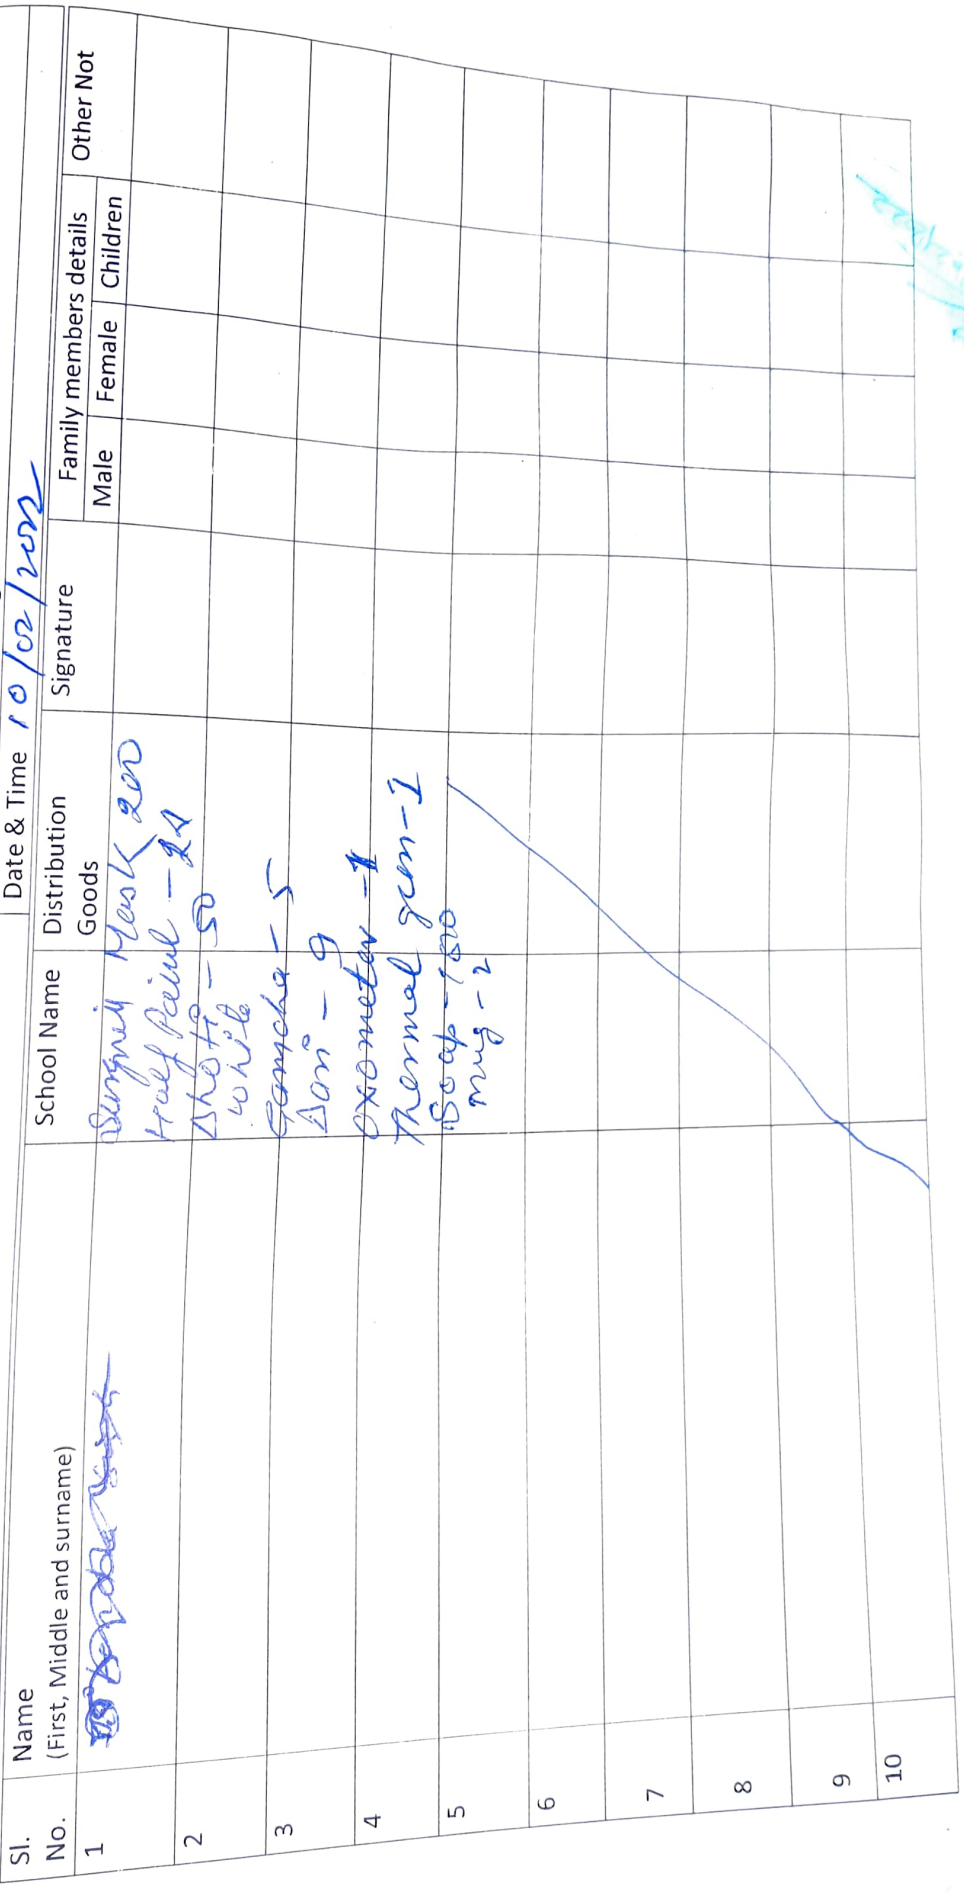 Date & Time 10/02/2022
Sl. No. Name (First, Middle and surname) School Name Distribution Goods Signature Family members details Other Not
Male Female Children
1 Mask 200
Half - 24
2 Dhoti - 50
white
3 Gamcha - 5
Dari - 9
4 oxometer - 1
Thermal gun - 1
5 Soap - 100
mug - 2
6
7
8
9
10